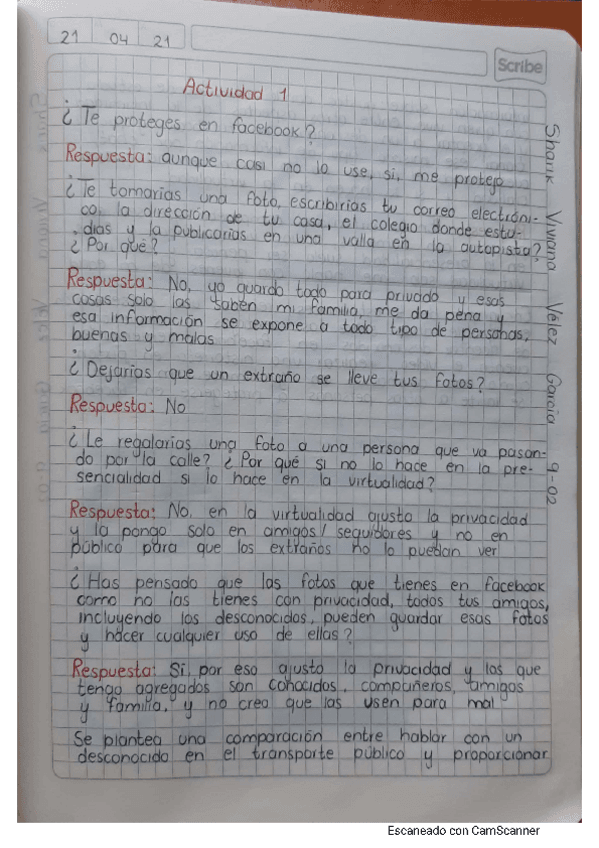 21 04 21
Scribe
Actividad 1
¿Te proteges en facebook?
Respuesta: aunque casi no lo use, si, me protejo
¿Te tomarias una foto, escribirias tu correo electróni-
co, la dirección de tu casa, el colegio donde estu-
dias y la publicarias en una valla en la autopista?
¿Por qué?
Respuesta: No, yo guardo todo para privado y esas
cosas solo las saben mi familia, me da pena y
esa información se expone a todo tipo de personas,
buenas y malas
¿Dejarias que un extraño se lleve tus fotos?
Respuesta: No
¿Le regalarias una foto a una persona que va pasan-
do por la calle? ¿Por qué si no lo hace en la pre-
sencialidad si lo hace en la virtualidad?
Respuesta: No, en la virtualidad ajusto la privacidad
y la pongo solo en amigos/seguidores y no en
público para que los extraños no lo puedan ver
¿Has pensado que las fotos que tienes en facebook
como no las tienes con privacidad, todos tus amigos,
incluyendo los desconocidos, pueden guardar esas fotos
y hacer cualquier uso de ellas?
Respuesta: Si, por eso ajusto la privacidad y los que
tengo agregados son conocidos, compañeros, amigos
y familia, y no creo que las usen para mal
Se plantea una comparación entre hablar con un
desconocido en el transporte público y proporcionar
Sharik Viviana Vélez Garcia 9-02
Escaneado con CamScanner